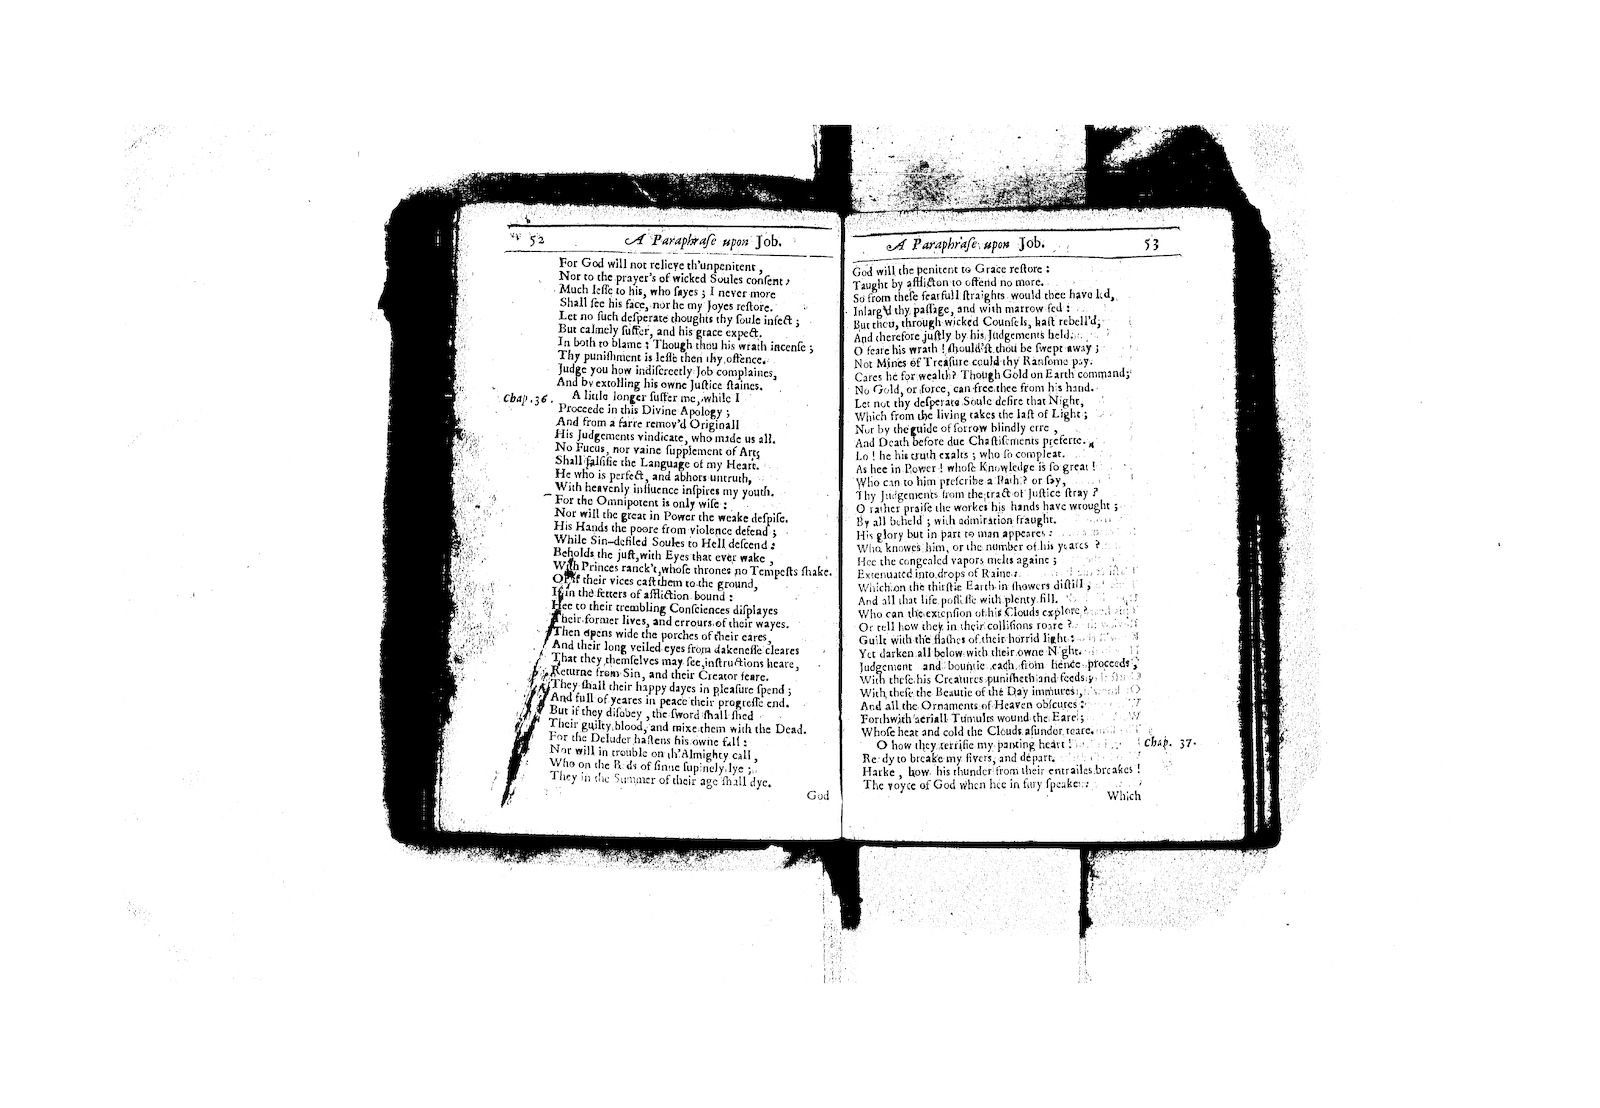 52 A Paraphraſe upon Job.
For God will not relieve th'unpenitent,
Nor to the prayer's of wicked Soules conſent;
Much leſſe to his, who ſayes; I never more
Shall ſee his face, nor he my Joyes reſtore.
Let no ſuch deſperate thoughts thy ſoule infect;
But calmely ſuffer, and his grace expect.
In both to blame: Though thou his wrath incenſe;
Thy puniſhment is leſſe then thy offence.
Judge you how indiſcreetly Job complaines,
And by extolling his owne Juſtice ſtaines.
Chap. 36. A little longer ſuffer me, while I
Proceede in this Divine Apology;
And from a farre remov'd Originall
His Judgements vindicate, who made us all.
No Fucus, nor vaine ſupplement of Art,
Shall falſifie the Language of my Heart.
He who is perfect, and abhors untruth,
With heavenly influence inſpires my youth.
For the Omnipotent is only wiſe:
Nor will the great in Power the weake deſpiſe.
His Hands the poore from violence defend;
While Sin-defiled Soules to Hell deſcend:
Beholds the juſt, with Eyes that ever wake,
With Princes ranck't, whoſe thrones no Tempeſts ſhake.
Or if their vices caſt them to the ground,
If in the fetters of affliction bound:
Hee to their trembling Conſciences diſplayes
Their former lives, and errours of their wayes.
Then opens wide the porches of their eares,
And their long veiled eyes from dakeneſſe cleares
That they themſelves may ſee, inſtructions heare,
Returne from Sin, and their Creator feare.
They ſhall their happy dayes in pleaſure ſpend;
And full of yeares in peace their progreſſe end.
But if they diſobey, the ſword ſhall ſhed
Their guilty blood, and mixe them with the Dead.
For the Deluder haſtens his owne fall:
Nor will in trouble on th'Almighty call,
Who on the Beds of ſinne ſupinely lye;
They in the Summer of their age ſhall dye.
God
A Paraphraſe upon Job. 53
God will the penitent to Grace reſtore:
Taught by affliction to offend no more.
So from theſe fearfull ſtraights would thee have led,
Inlarg'd thy paſſage, and with marrow fed:
But thou, through wicked Counſels, haſt rebell'd;
And therefore juſtly by his Judgements held.
O feare his wrath! ſhould'ſt thou be ſwept away;
Not Mines of Treaſure could thy Ranſome pay.
Cares he for wealth? Though Gold on Earth command;
No Gold, or force, can free thee from his hand.
Let not thy deſperate Soule deſire that Night,
Which from the living takes the laſt of Light;
Nor by the guide of ſorrow blindly erre,
And Death before due Chaſtiſements preferre.
Lo! he his truth exalts; who ſo compleat.
As hee in Power! whoſe Knowledge is ſo great!
Who can to him preſcribe a Path? or ſay,
Thy Judgements from the tract of Juſtice ſtray?
O rather praiſe the workes his hands have wrought;
By all beheld; with admiration fraught.
His glory but in part to man appeares:
Who knowes him, or the number of his yeares?
Hee the congealed vapors melts againe;
Extenuated into drops of Raine:
Which on the thirſtie Earth in ſhowers diſtill,
And all that life poſſeſſe with plenty fill.
Who can the extenſion of his Clouds explore?
Or tell how they in their colliſions roare?
Guilt with the flaſhes of their horrid light:
Yet darken all below with their owne Night.
Judgement and bountie each from hence proceeds;
With theſe his Creatures puniſheth and feeds;
With theſe the Beautie of the Day immures,
And all the Ornaments of Heaven obſcures:
Forthwith aeriall Tumults wound the Eare;
Whoſe heat and cold the Clouds aſunder teare.
O how they terrifie my panting heart! Chap. 37.
Ready to breake my fivers, and depart.
Harke, how his thunder from their entrailes breakes!
The voyce of God when hee in fury ſpeakes:
Which